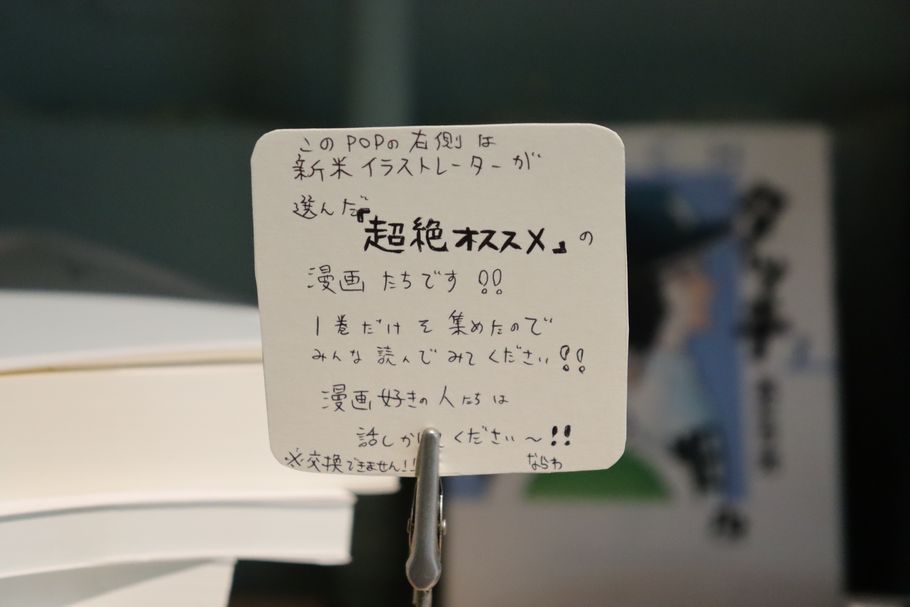 このPOPの右側は
新米イラストレーターが
選んだ
『超絶オススメ』の
漫画たちです!!
1巻だけを集めたので
みんな読んでみてください!!
漫画好きの人たちは
話しかけてください〜!!
※交換できません!!
ならわ